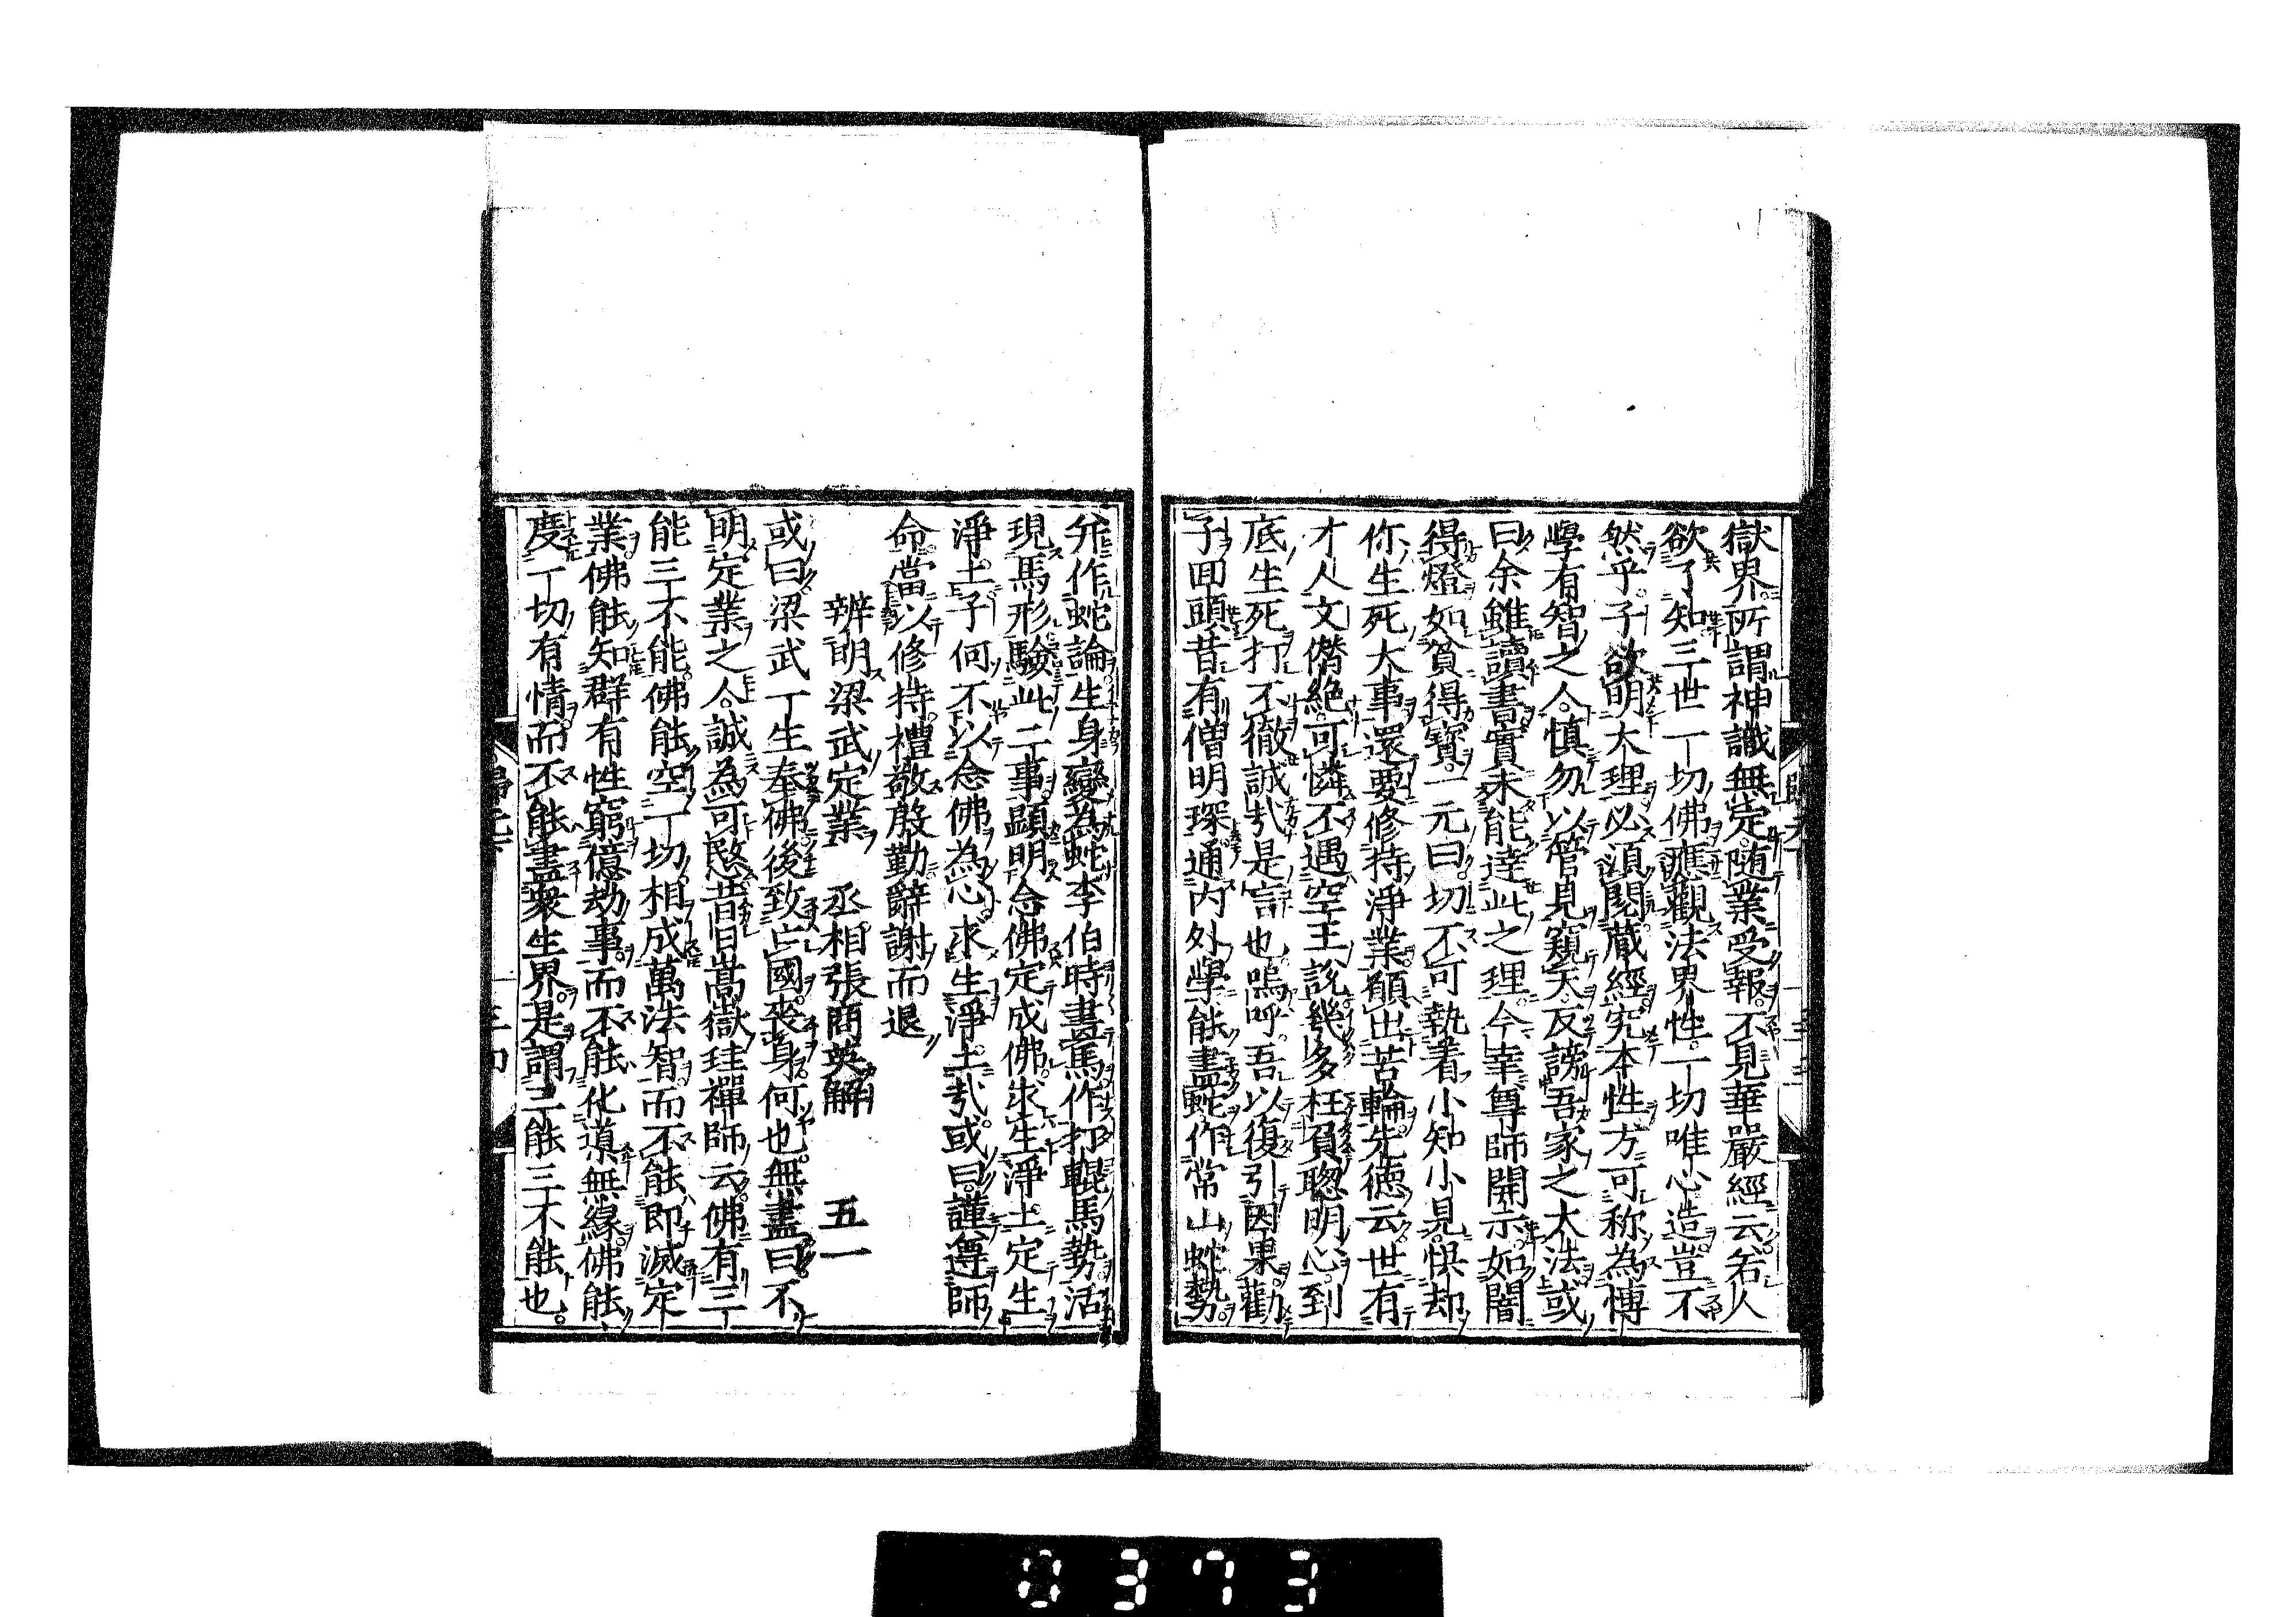 獄界。所謂神識無定。随業受報。不見華嚴經云。若人
欲了知三世一切佛應觀法界性。一切唯心造。豈不
然乎。子欲明大理必須閱蔵經究本性方可称為博
學有智之人。慎勿以管見窺天。反謗吾家之大法。或
曰余雖讀書實未能達此之理。今幸尊師開示。如闇
得燈如貧得寶。一元曰。切不可執着小知小見。惧却
你生死大事還要修持淨業。願出苦輪。先徳云世有
才人文僣絶。可憐不遇空王。說幾多枉負聰明心。到
底生死打不徹誠哉是言也。嗚呼。吾以復引因果。勸
子回頭昔有僧明琛。通内外學能盡蛇作常山蛇勢
弁作蛇論。生身變為蛇李伯時畫馬作打輥馬勢。活
現馬形驗此二事。顕明念佛定成佛。求生淨土。定生
淨土。子何不以念佛為心。求生淨土哉。或曰。謹遵師
命。當以修持。禮敬慇勤辭謝而退
辨明梁武定業 丞相張商英解 五一
或曰。梁武一生奉佛後致亡國。喪身。何也。無盡曰。不
明定業之人。誠為可愍。昔日嵩嶽珪禪師云。佛有三
能三不能。佛能空一切相成萬法智。而不能即滅定
業。佛能知群有性窮億劫事。而不能化導無縁。佛能
度一切有情。而不能盡衆生界。是謂三能三不能也。
歸元下
0373